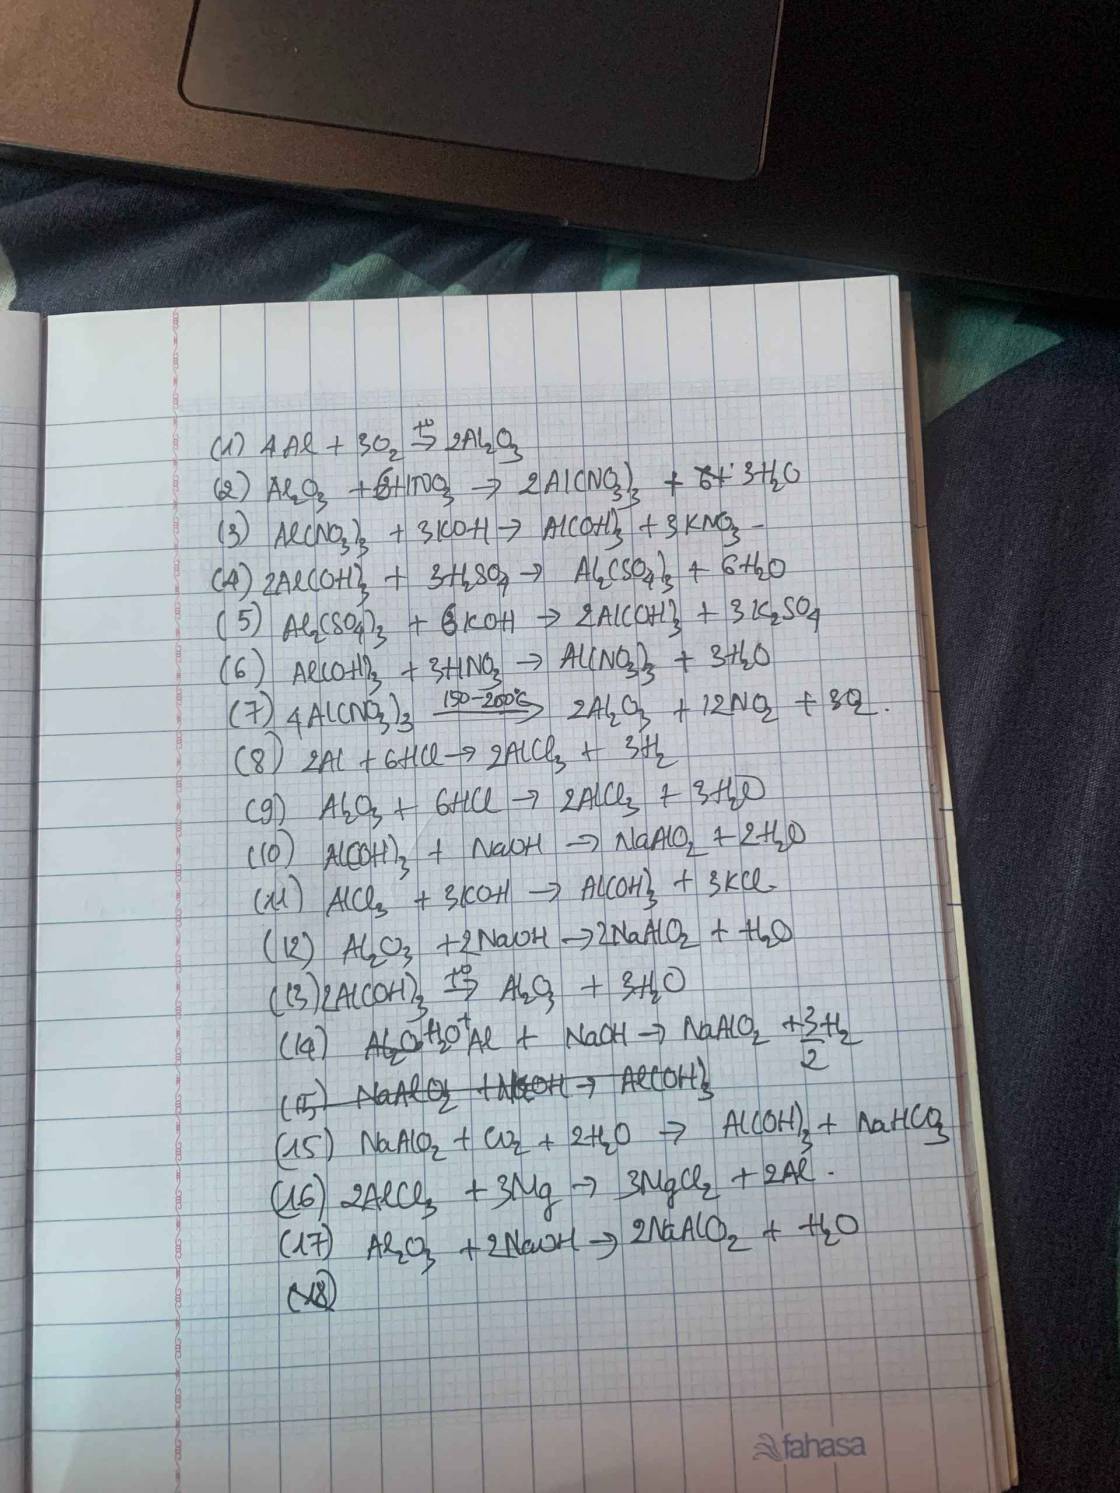 (1) 4Al + 3O₂ t°→ 2Al₂O₃
(2) Al₂O₃ + 6HNO₃ → 2Al(NO₃)₃ + 3H₂O
(3) Al(NO₃)₃ + 3KOH → Al(OH)₃ + 3KNO₃
(4) 2Al(OH)₃ + 3H₂SO₄ → Al₂(SO₄)₃ + 6H₂O
(5) Al₂(SO₄)₃ + 6KOH → 2Al(OH)₃ + 3K₂SO₄
(6) Al(OH)₃ + 3HNO₃ → Al(NO₃)₃ + 3H₂O
(7) 4Al(NO₃)₃ 150-200°C→ 2Al₂O₃ + 12NO₂ + 3O₂.
(8) 2Al + 6HCl → 2AlCl₃ + 3H₂
(9) Al₂O₃ + 6HCl → 2AlCl₃ + 3H₂O
(10) Al(OH)₃ + NaOH → NaAlO₂ + 2H₂O
(11) AlCl₃ + 3KOH → Al(OH)₃ + 3KCl.
(12) Al₂O₃ + 2NaOH → 2NaAlO₂ + H₂O
(13) 2Al(OH)₃ t°→ Al₂O₃ + 3H₂O
(14) H₂O + Al + NaOH → NaAlO₂ + 3/2 H₂
(15) NaAlO₂ + → Al(OH)₃
(15) NaAlO₂ + CO₂ + 2H₂O → Al(OH)₃ + NaHCO₃
(16) 2AlCl₃ + 3Mg → 3MgCl₂ + 2Al.
(17) Al₂O₃ + 2NaOH → 2NaAlO₂ + H₂O
(18)
fahasa